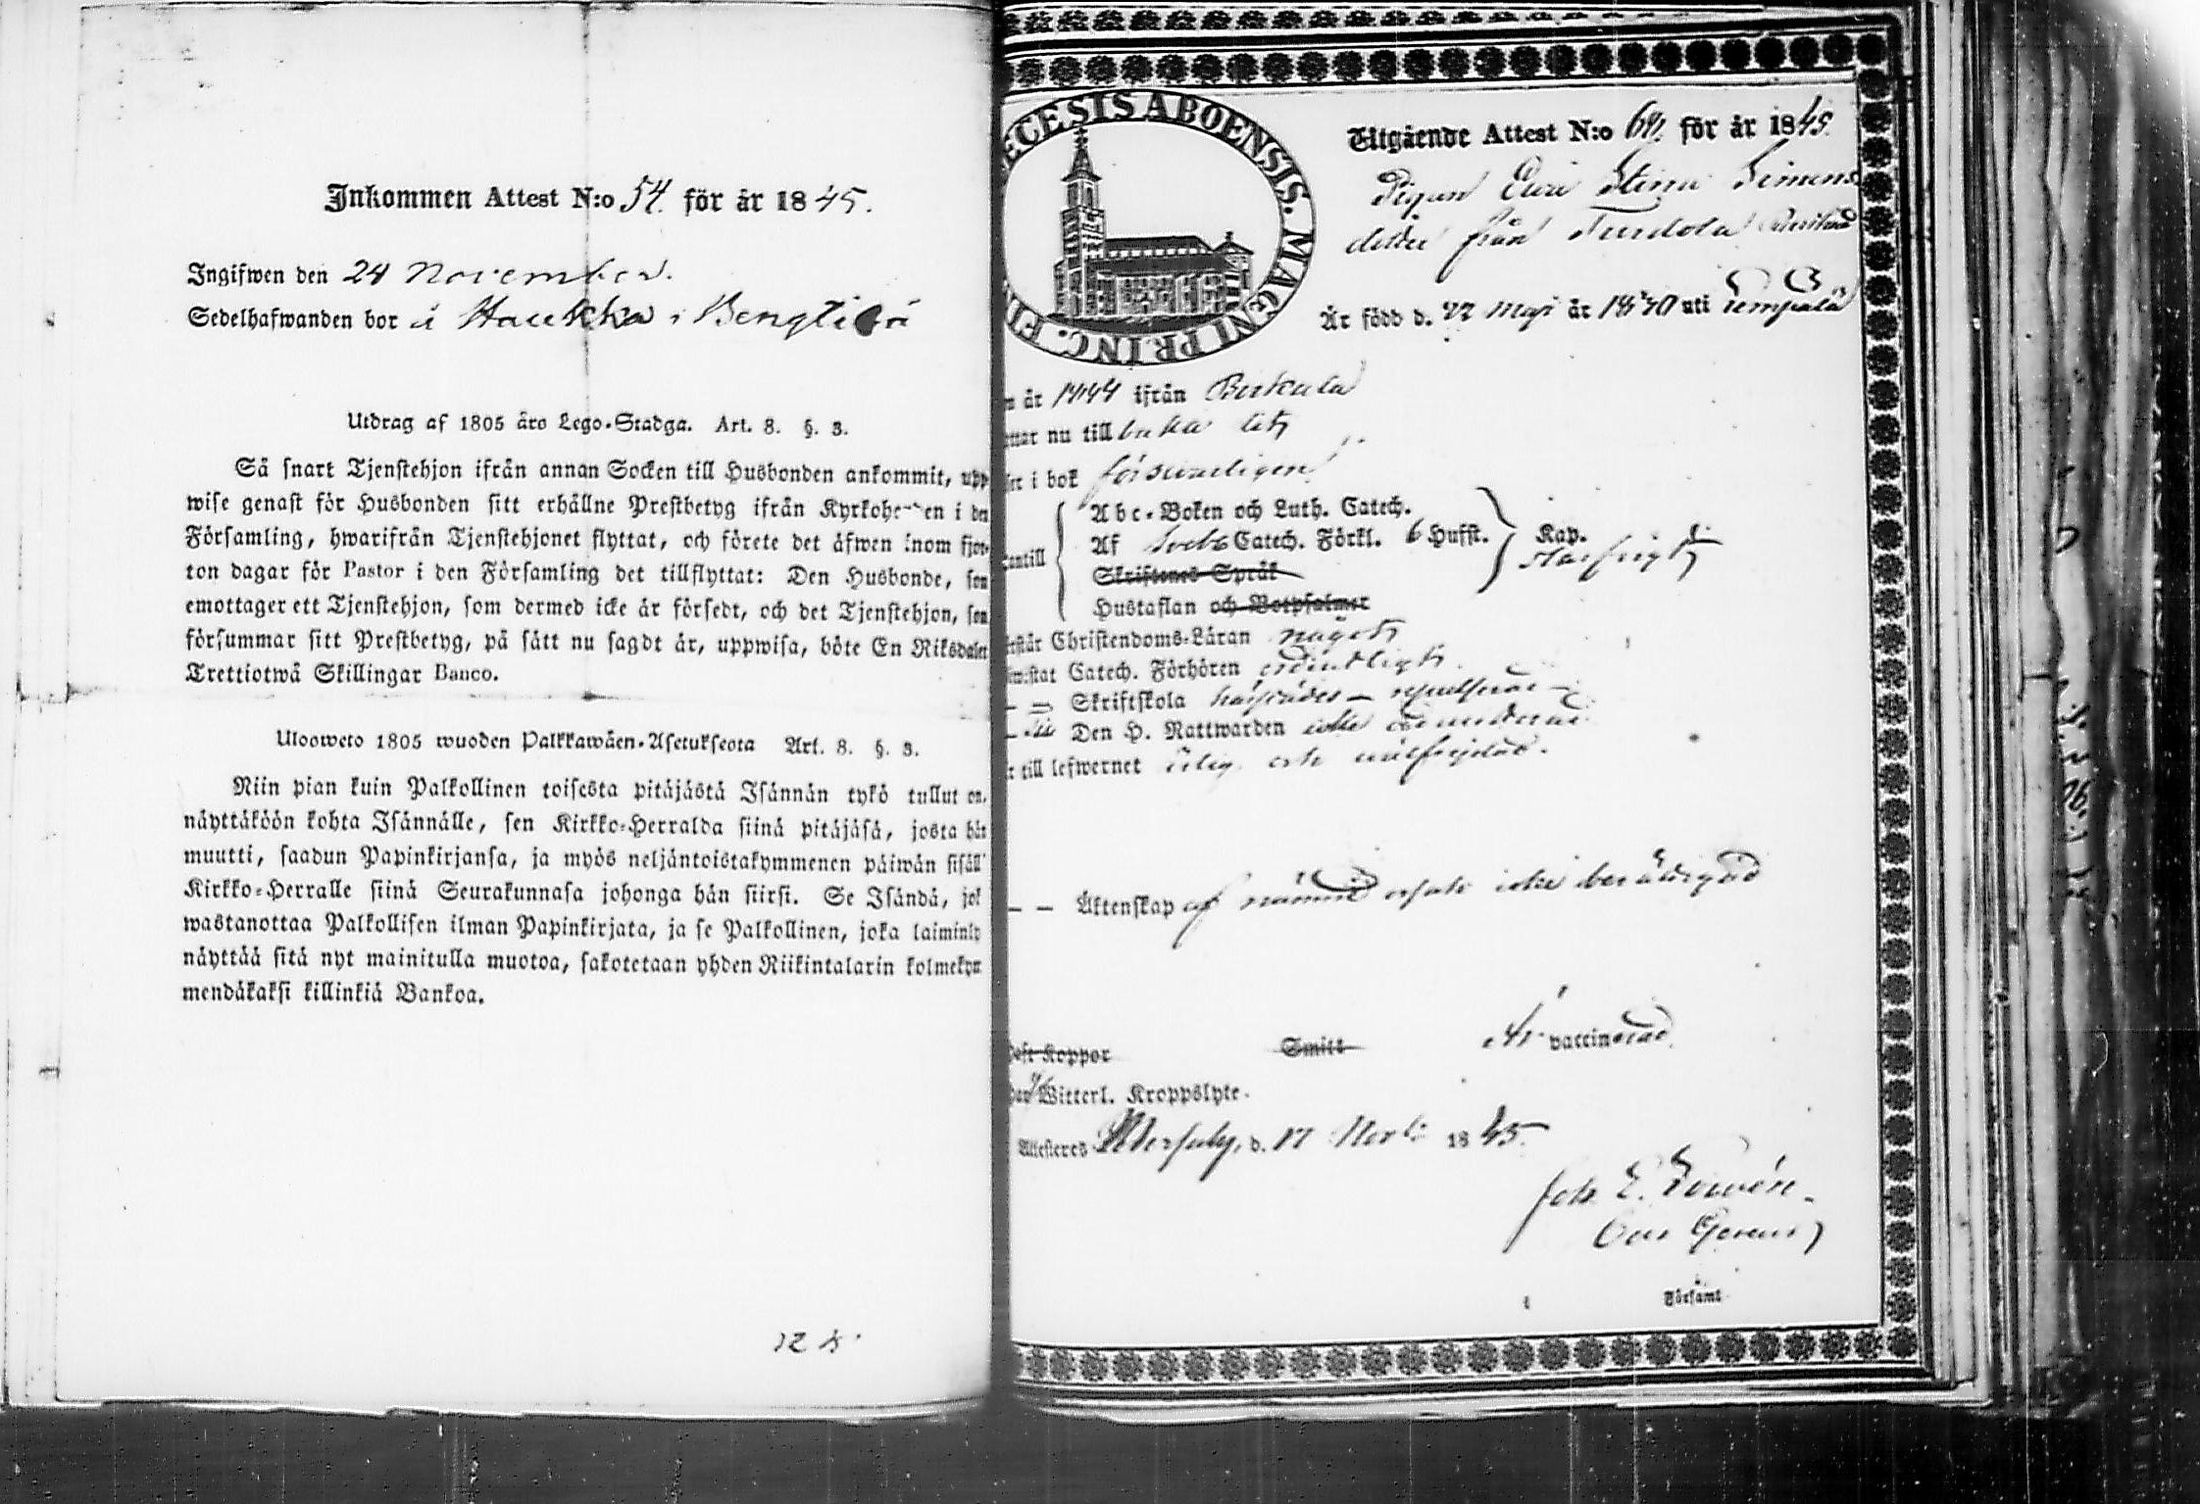 Inkommen Attest N:o 54. för år 1845.
Ingifwen den 24 November.
Sedelhafwanden bor å Haukka i Bengtilä
Utdrag af 1805 års Lego-Stadga. Art. 8. §. 3.
Så snart Tjenstehjon ifrån annan Socken till Husbonden ankommit, upp
wise genast för Husbonden sitt erhållne Prestbetyg ifrån Kyrkoherden i den
Församling, hwarifrån Tjenstehjonet flyttat, och förete det äfwen inom fjor-
ton dagar för Pastor i den Församling det tillflyttat: Den Husbonde, som
emottager ett Tjenstehjon, som dermed icke är försedt, och det Tjenstehjon, som
försummar sitt Prestbetyg, på sätt nu sagdt är, uppwisa, böte En Riksdaler
Trettiotwå Skillingar Banco.
Ulosweto 1805 wuoden Palkkawäen-Asetuksesta Art. 8. §. 3.
Niin pian kuin Palkollinen toisesta pitäjästä Isännän tykö tullut on,
näyttäköön kohta Isännälle, sen Kirkko-Herralda siinä pitäjäsä, josta hän
muutti, saadun Papinkirjansa, ja myös neljäntoistakymmenen päiwän sisäll'
Kirkko-Herralle siinä Seurakunnasa johonga hän siirsi. Se Isändä, jok
wastanottaa Palkollisen ilman Papinkirjata, ja se Palkollinen, joka laiminly
näyttää sitä nyt mainitulla muotoa, sakotetaan yhden Riikintalarin kolmekym
mendäkaksi killinkiä Bankoa.
ECESIS ABOENSIS. MAGNI PRINC. FI
Utgående Attest N:o för år 1845.
Pigan Eva Stina Simons
dotter från
Är född d. 22 Maji år uti Lempälä
år 1844 ifrån Birkala
nu till baka
i bok försvarligen
Abc-Boken och Luth. Catech.
Af Svebs Catech. Förkl. 6 Hufst. Kap.
antill
Skriftenes Språk
Hustaflan och Botpsalmer
rstår Christendoms-Läran något
Catech. Förhören ordentligt.
— Skriftskola
Den H. Nattwarden icke admitterad
till lefwernet ärlig och
— — Äktenskap af nämnd orsak icke berättigad
Koppor Smitt Är vaccinerad.
Witterl. Kroppslyte.
Attesteres d. 17 1845.
Joh. E.
Församl.